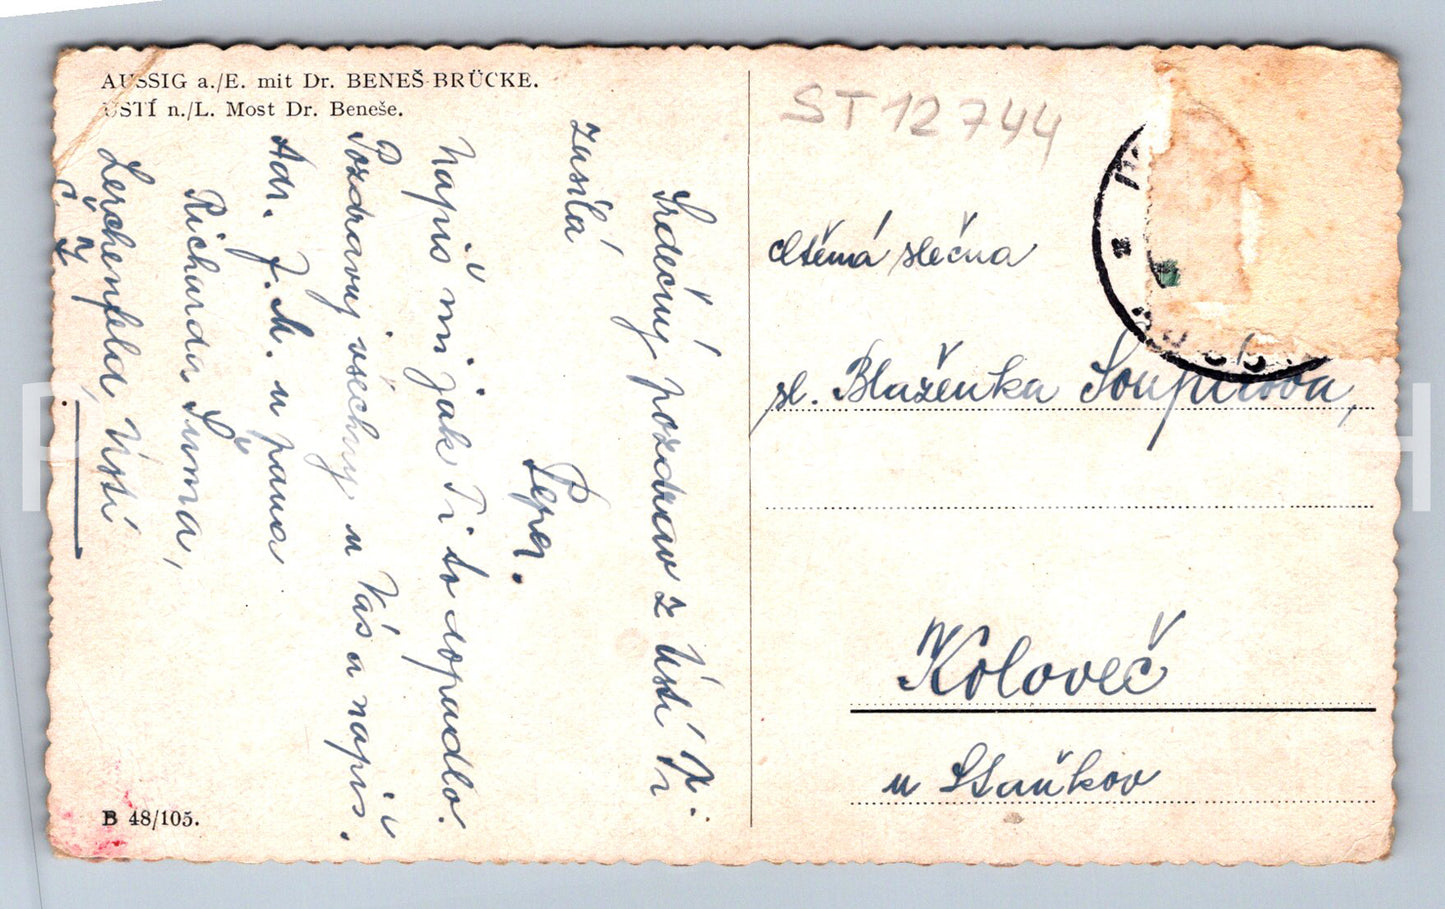 AUSSIG a./E. mit Dr. BENEŠ-BRÜCKE.
ÚSTÍ n./L. Most Dr. Beneše.
ST 12744
Srdečný pozdrav z Ústí n.
L. Ti
zasílá
Pepa.
Napiš mi jak Ti to dopadlo.
Pozdravuj všechny u Vás a napiš.
Adr. J. M. u pana
Richarda Šuma,
Lerchenfeld, Ústí
č. 2
Ctěná slečna
sl. Blaženka Soupirová,
Koloveč
u Staňkov
B 48/105.